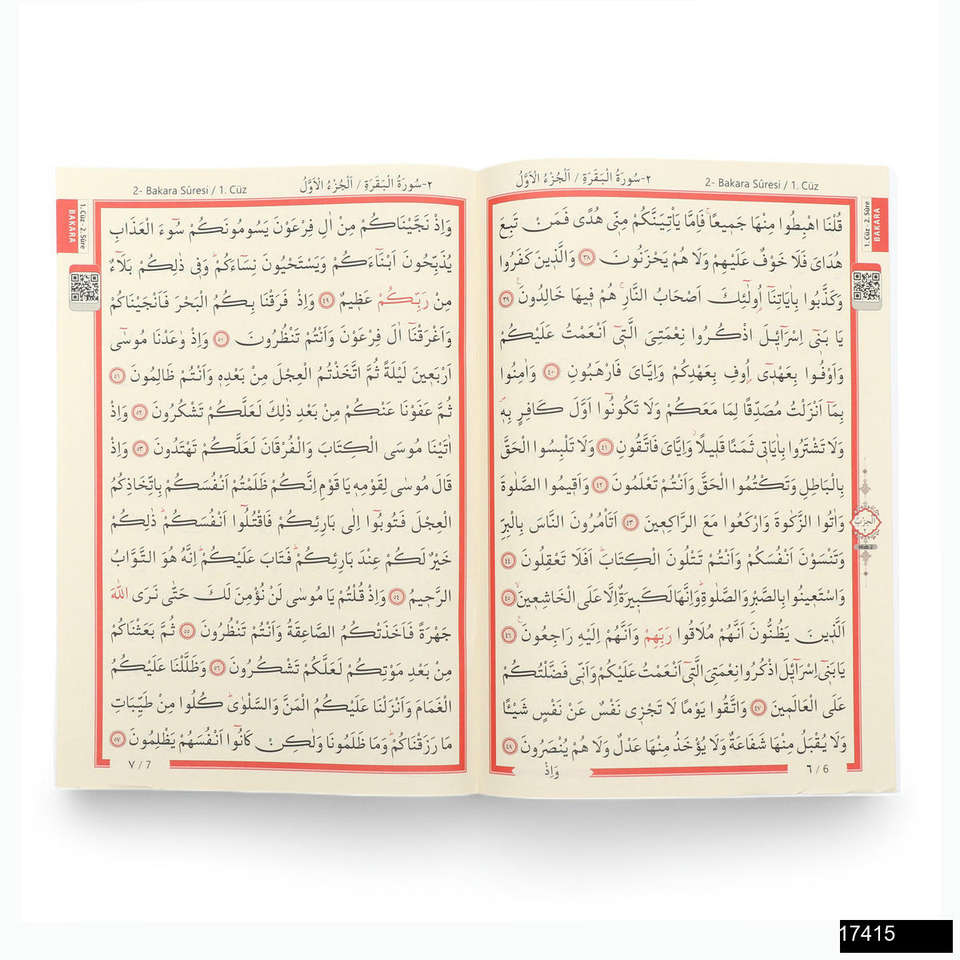 ٢-سُورَةُ الْبَقَرَةِ / اَلْجُزْءُ الْاَوَّلُ
2- Bakara Sûresi / 1. Cüz
1. Cüz - 2. Sûre
BAKARA
قُلْنَا اهْبِطُوا مِنْهَا جَمِيعًاۚ فَاِمَّا يَأْتِيَنَّكُمْ مِنّ۪ي هُدًى فَمَنْ تَبِعَ
هُدَايَ فَلَا خَوْفٌ عَلَيْهِمْ وَلَا هُمْ يَحْزَنُونَ ٣٨ وَالَّذ۪ينَ كَفَرُوا
وَكَذَّبُوا بِاٰيَاتِنَٓا اُو۬لٰٓئِكَ اَصْحَابُ النَّارِۚ هُمْ ف۪يهَا خَالِدُونَ۟ ٣٩
يَا بَن۪ٓي اِسْرَٓائ۪لَ اذْكُرُوا نِعْمَتِيَ الَّت۪ٓي اَنْعَمْتُ عَلَيْكُمْ
وَاَوْفُوا بِعَهْد۪ٓي اُو۫فِ بِعَهْدِكُمْ وَاِيَّايَ فَارْهَبُونِ ٤٠ وَاٰمِنُوا
بِمَٓا اَنْزَلْتُ مُصَدِّقًا لِمَا مَعَكُمْ وَلَا تَكُونُٓوا اَوَّلَ كَافِرٍ بِه۪ۖ
وَلَا تَشْتَرُوا بِاٰيَات۪ي ثَمَنًا قَل۪يلًاۘ وَاِيَّايَ فَاتَّقُونِ ٤١ وَلَا تَلْبِسُوا الْحَقَّ
بِالْبَاطِلِ وَتَكْتُمُوا الْحَقَّ وَاَنْتُمْ تَعْلَمُونَ ٤٢ وَاَق۪يمُوا الصَّلٰوةَ
وَاٰتُوا الزَّكٰوةَ وَارْكَعُوا مَعَ الرَّاكِع۪ينَ ٤٣ اَتَأْمُرُونَ النَّاسَ بِالْبِرِّ
وَتَنْسَوْنَ اَنْفُسَكُمْ وَاَنْتُمْ تَتْلُونَ الْكِتَابَۜ اَفَلَا تَعْقِلُونَ ٤٤
وَاسْتَع۪ينُوا بِالصَّبْرِ وَالصَّلٰوةِۜ وَاِنَّهَا لَكَب۪يرَةٌ اِلَّا عَلَى الْخَاشِع۪ينَۙ ٤٥
اَلَّذ۪ينَ يَظُنُّونَ اَنَّهُمْ مُلَاقُوا رَبِّهِمْ وَاَنَّهُمْ اِلَيْهِ رَاجِعُونَ۟ ٤٦
يَا بَن۪ٓي اِسْرَٓائ۪لَ اذْكُرُوا نِعْمَتِيَ الَّت۪ٓي اَنْعَمْتُ عَلَيْكُمْ وَاَنّ۪ي فَضَّلْتُكُمْ
عَلَى الْعَالَم۪ينَ ٤٧ وَاتَّقُوا يَوْمًا لَا تَجْز۪ي نَفْسٌ عَنْ نَفْسٍ شَيْـًٔا
وَلَا يُقْبَلُ مِنْهَا شَفَاعَةٌ وَلَا يُؤْخَذُ مِنْهَا عَدْلٌ وَلَا هُمْ يُنْصَرُونَ ٤٨
٦ / 6
وَاِذْ
٢-سُورَةُ الْبَقَرَةِ / اَلْجُزْءُ الْاَوَّلُ
2- Bakara Sûresi / 1. Cüz
1. Cüz - 2. Sûre
BAKARA
وَاِذْ نَجَّيْنَاكُمْ مِنْ اٰلِ فِرْعَوْنَ يَسُومُونَكُمْ سُٓوءَ الْعَذَابِ
يُذَبِّحُونَ اَبْنَٓاءَكُمْ وَيَسْتَحْيُونَ نِسَٓاءَكُمْۜ وَف۪ي ذٰلِكُمْ بَلَٓاءٌ
مِنْ رَبِّكُمْ عَظ۪يمٌ ٤٩ وَاِذْ فَرَقْنَا بِكُمُ الْبَحْرَ فَاَنْجَيْنَاكُمْ
وَاَغْرَقْنَٓا اٰلَ فِرْعَوْنَ وَاَنْتُمْ تَنْظُرُونَ ٥٠ وَاِذْ وٰعَدْنَا مُوسٰٓى
اَرْبَع۪ينَ لَيْلَةً ثُمَّ اتَّخَذْتُمُ الْعِجْلَ مِنْ بَعْدِه۪ وَاَنْتُمْ ظَالِمُونَ ٥١
ثُمَّ عَفَوْنَا عَنْكُمْ مِنْ بَعْدِ ذٰلِكَ لَعَلَّكُمْ تَشْكُرُونَ ٥٢ وَاِذْ
اٰتَيْنَا مُوسَى الْكِتَابَ وَالْفُرْقَانَ لَعَلَّكُمْ تَهْتَدُونَ ٥٣ وَاِذْ
قَالَ مُوسٰى لِقَوْمِه۪ يَا قَوْمِ اِنَّكُمْ ظَلَمْتُمْ اَنْفُسَكُمْ بِاتِّخَاذِكُمُ
الْعِجْلَ فَتُوبُٓوا اِلٰى بَارِئِكُمْ فَاقْتُلُٓوا اَنْفُسَكُمْۜ ذٰلِكُمْ
خَيْرٌ لَكُمْ عِنْدَ بَارِئِكُمْۜ فَتَابَ عَلَيْكُمْۜ اِنَّهُ هُوَ التَّوَّابُ
الرَّح۪يمُ ٥٤ وَاِذْ قُلْتُمْ يَا مُوسٰى لَنْ نُؤْمِنَ لَكَ حَتّٰى نَرَى اللّٰهَ
جَهْرَةً فَاَخَذَتْكُمُ الصَّاعِقَةُ وَاَنْتُمْ تَنْظُرُونَ ٥٥ ثُمَّ بَعَثْنَاكُمْ
مِنْ بَعْدِ مَوْتِكُمْ لَعَلَّكُمْ تَشْكُرُونَ ٥٦ وَظَلَّلْنَا عَلَيْكُمُ
الْغَمَامَ وَاَنْزَلْنَا عَلَيْكُمُ الْمَنَّ وَالسَّلْوٰىۜ كُلُوا مِنْ طَيِّبَاتِ
مَا رَزَقْنَاكُمْۜ وَمَا ظَلَمُونَا وَلٰكِنْ كَانُٓوا اَنْفُسَهُمْ يَظْلِمُونَ ٥٧
٧ / 7
17415